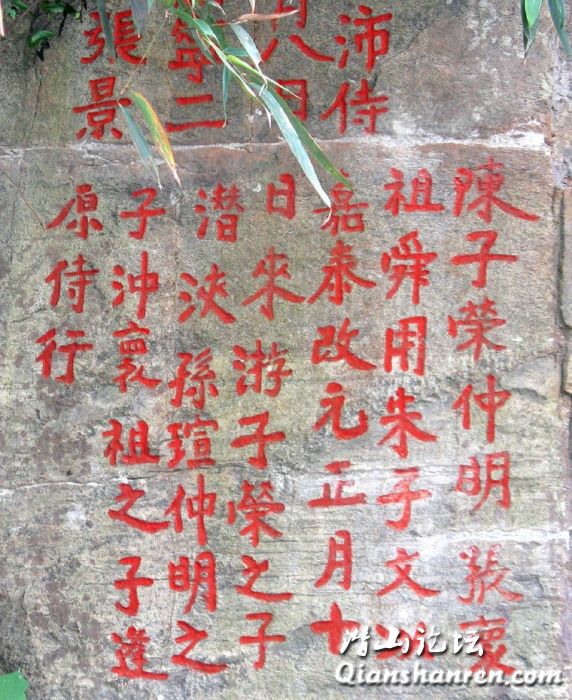 沛侍
月八日
寧二
張景
陳子榮仲明張襄
祖舜用朱子文
嘉泰改元正月十
日來游子榮之子
潛浹孫瑄仲明之
子沖襄祖之子逢
原侍行
潜山论坛
Qianshanren.com